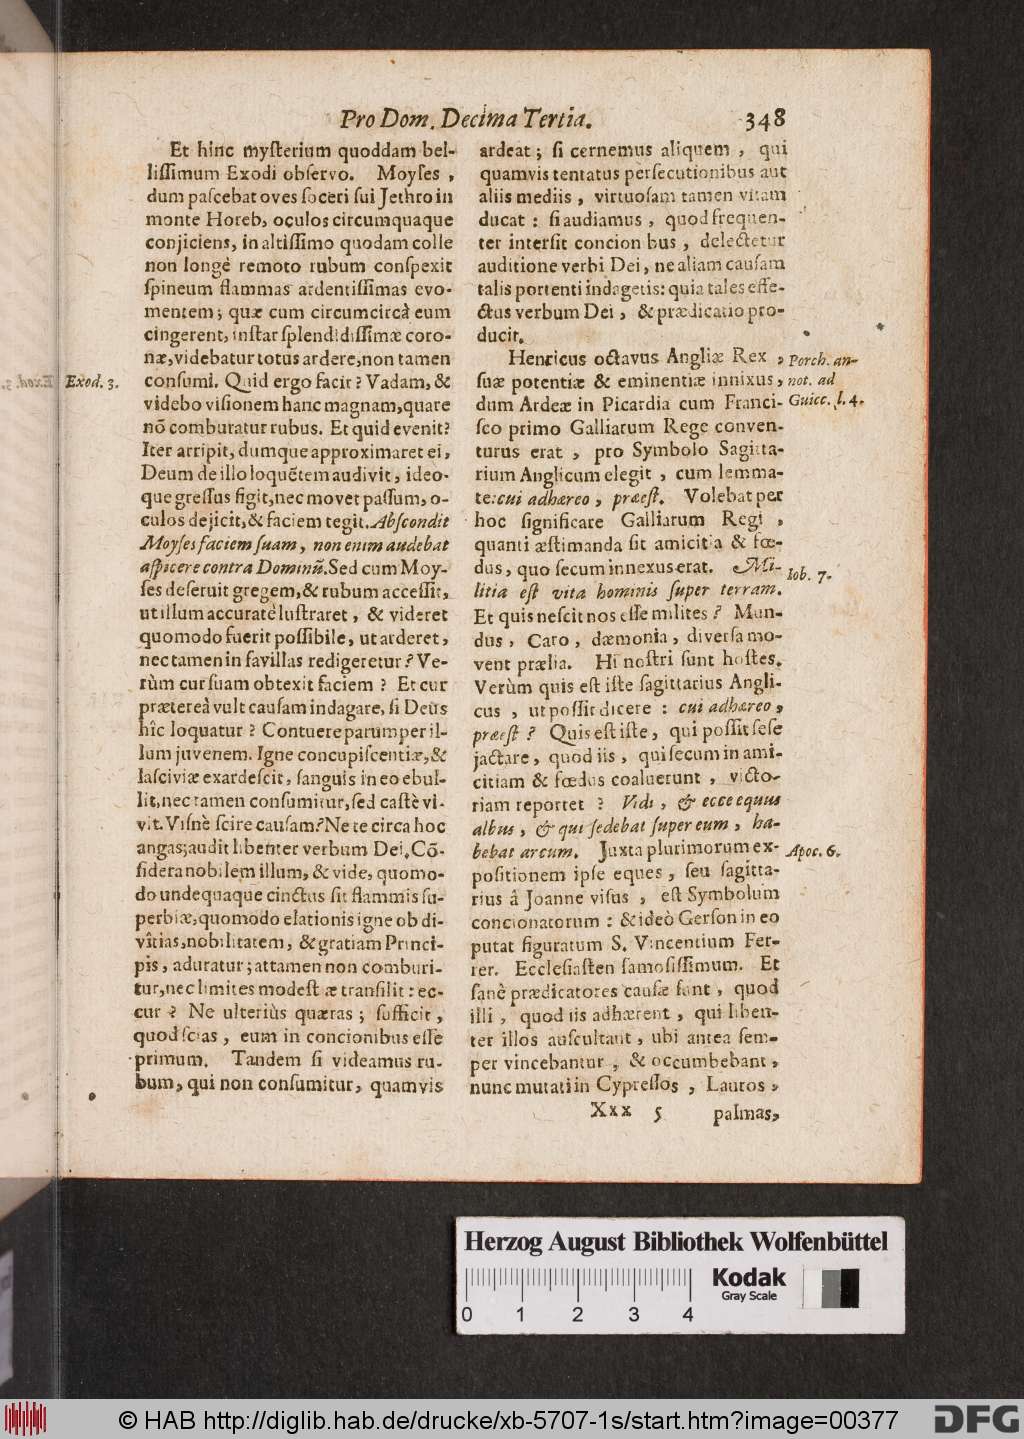 Pro Dom. Decima Tertia. 348
Et hinc myſterium quoddam bel-
liſſimum Exodi obſervo. Moyſes,
dum paſcebat oves ſoceri ſui Jethro in
monte Horeb, oculos circumquaque
conjiciens, in altiſſimo quodam colle
non longè remoto rubum conſpexit
ſpineum flammas ardentiſſimas evo-
mentem; quæ cum circumcircà eum
cingerent, inſtar ſplendidiſſimæ coro-
næ, videbatur totus ardere, non tamen
conſumi. Quid ergo facit? Vadam, &
videbo viſionem hanc magnam, quare
nõ comburatur rubus. Et quid evenit?
Iter arripit, dumque approximaret ei,
Deum de illo loquẽtem audivit, ideo-
que greſſus figit, nec movet paſſum, o-
culos dejicit, & faciem tegit. Abſcondit
Moyſes faciem ſuam, non enim audebat
aſpicere contra Dominũ. Sed cum Moy-
ſes deſeruit gregem, & rubum acceſſit,
ut illum accuratè luſtraret, & videret
quomodo fuerit poſſibile, ut arderet,
nec tamen in favillas redigeretur? Ve-
rùm cur ſuam obtexit faciem? Et cur
prætereà vult cauſam indagare, ſi Deus
hîc loquatur? Contuere parumper il-
lum juvenem. Igne concupiſcentiæ, &
laſciviæ exardeſcit, ſanguis in eo ebul-
lit, nec tamen conſumitur, ſed caſtè vi-
vit. Viſnè ſcire cauſam? Ne te circa hoc
angas; audit libenter verbum Dei. Cõ-
ſidera nobilem illum, & vide, quomo-
do undequaque cinctus ſit flammis ſu-
perbiæ, quomodo elationis igne ob di-
vîtias, nobilitatem, & gratiam Princi-
pis, aduratur; attamen non comburi-
tur, nec limites modeſtiæ tranſilit: ec-
cur? Ne ulteriùs quæras; ſufficit,
quod ſcias, eum in concionibus eſſe
primum. Tandem ſi videamus ru-
bum, qui non conſumitur, quamvis
Exod. 3.
ardeat; ſi cernemus aliquem, qui
quamvis tentatus perſecutionibus aut
aliis mediis, virtuoſam tamen vitam
ducat: ſi audiamus, quod frequen-
ter interſit concionibus, delectetur
auditione verbi Dei, ne aliam cauſam
talis portenti indagetis: quia tales effe-
ctus verbum Dei, & prædicatio pro-
ducit.
Henricus octavus Angliæ Rex,
ſuæ potentiæ & eminentiæ innixus,
dum Ardeæ in Picardia cum Franci-
ſco primo Galliarum Rege conven-
turus erat, pro Symbolo Sagitta-
rium Anglicum elegit, cum lemma-
te: cui adhæreo, præeſt. Volebat per
hoc ſignificare Galliarum Regi,
quanti æſtimanda ſit amicitia & fœ-
dus, quo ſecum innexus erat. Mi-
litia eſt vita hominis ſuper terram.
Et quis neſcit nos eſſe milites? Mun-
dus, Caro, dæmonia, diverſa mo-
vent prælia. Hi noſtri ſunt hoſtes.
Verùm quis eſt iſte ſagittarius Angli-
cus, ut poſſit dicere: cui adhæreo,
præeſt? Quis eſt iſte, qui poſſit ſeſe
jactare, quod iis, qui ſecum in ami-
citiam & fœdus coaluerunt, victo-
riam reportet? Vidi, & ecce equus
albus, & qui ſedebat ſuper eum, ha-
bebat arcum. Juxta plurimorum ex-
poſitionem ipſe eques, ſeu ſagitta-
rius â Joanne viſus, eſt Symbolum
concionatorum: & ideò Gerſon in eo
putat figuratum S. Vincentium Fer-
rer. Eccleſiaſten famoſiſſimum. Et
ſanè prædicatores cauſæ ſunt, quod
illi, quod iis adhærent, qui liben-
ter illos auſcultant, ubi antea ſem-
per vincebantur, & occumbebant,
nunc mutati in Cypreſſos, Lauros,
Porch. an-
not. ad
Guicc. l. 4.
Iob. 7.
Apoc. 6.
Xxx 5 palmas,
Herzog August Bibliothek Wolfenbüttel
0 1 2 3 4
Kodak
Gray Scale
© HAB http://diglib.hab.de/drucke/xb-5707-1s/start.htm?image=00377
DFG